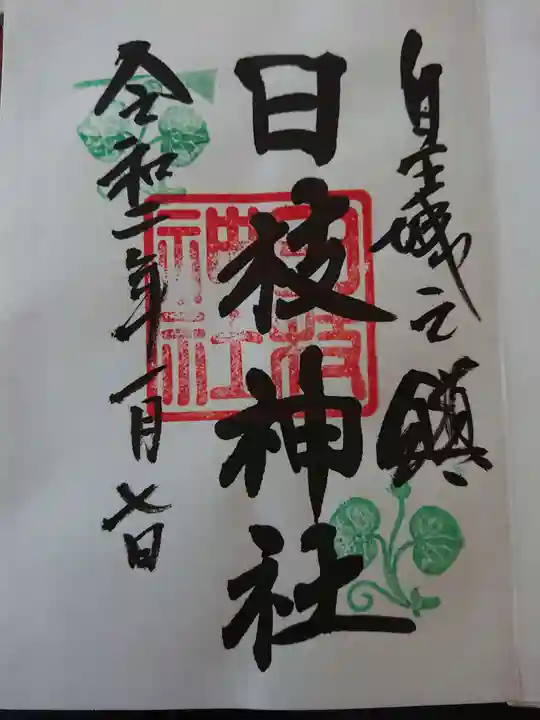 皇城之鎮
日枝神社
令和二年一月七日
日枝神社